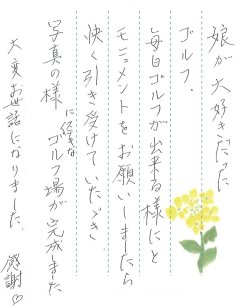 娘が大好きだった
ゴルフ.
毎日ゴルフが出来る様にと
モニュメントをお願いしましたら
快く引き受けていただき
写真の様に好きなゴルフ場が完成しました
大変お世話になりました. 感謝♡